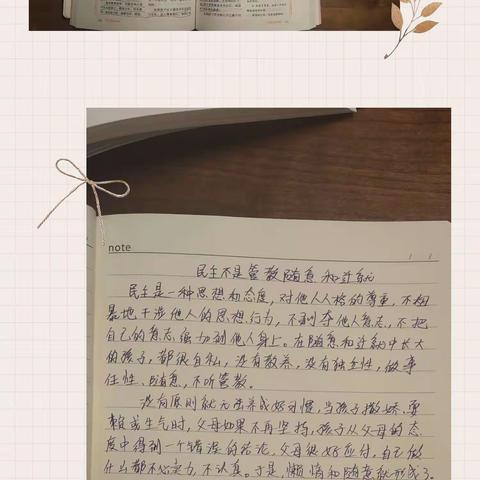 note
民主不是管教随意和迁就
民主是一种思想和态度，对他人人格的尊重，不粗
暴地干涉他人的思想行为，不剥夺他人意志，不把
自己的意志强加到他人身上。在随意和迁就中长大
的孩子，都很自私，没有教养，没有独立性，做事
任性、随意，不听管教。
没有原则就无法养成好习惯，当孩子撒娇、耍
赖或生气时，父母如果不再坚持，孩子从父母的态
度中得到一个错误的结论，父母很好应付，自己做
什么都不必定力，不认真。于是，懒惰和随意就形成了。